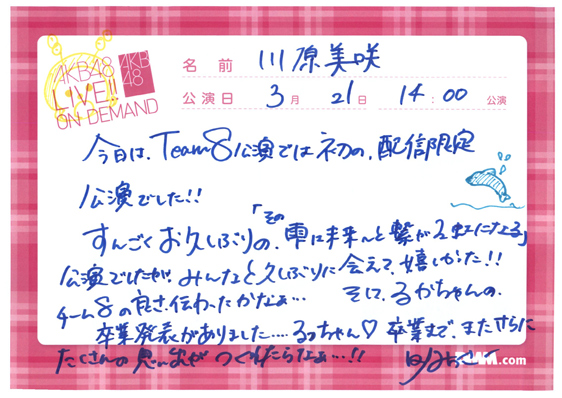 AKB48
LIVE!!
ON DEMAND
AKB
48
名前 川原美咲
公演日 3月 21日 14:00 公演
今日は、Team8公演では初の、配信限定
公演でした!!
すんごくお久しぶりの、「その雫は、未来へと繋がる虹になる」
公演でしたが、みんなと久しぶりに会えて、嬉しかった!!
チーム8の良さ、伝わったかなぁ… そして、るかちゃんの、
卒業発表がありました……るかちゃん♡ 卒業まで、またさらに
たくさんの思い出が つくれたらなぁ…!!
.com